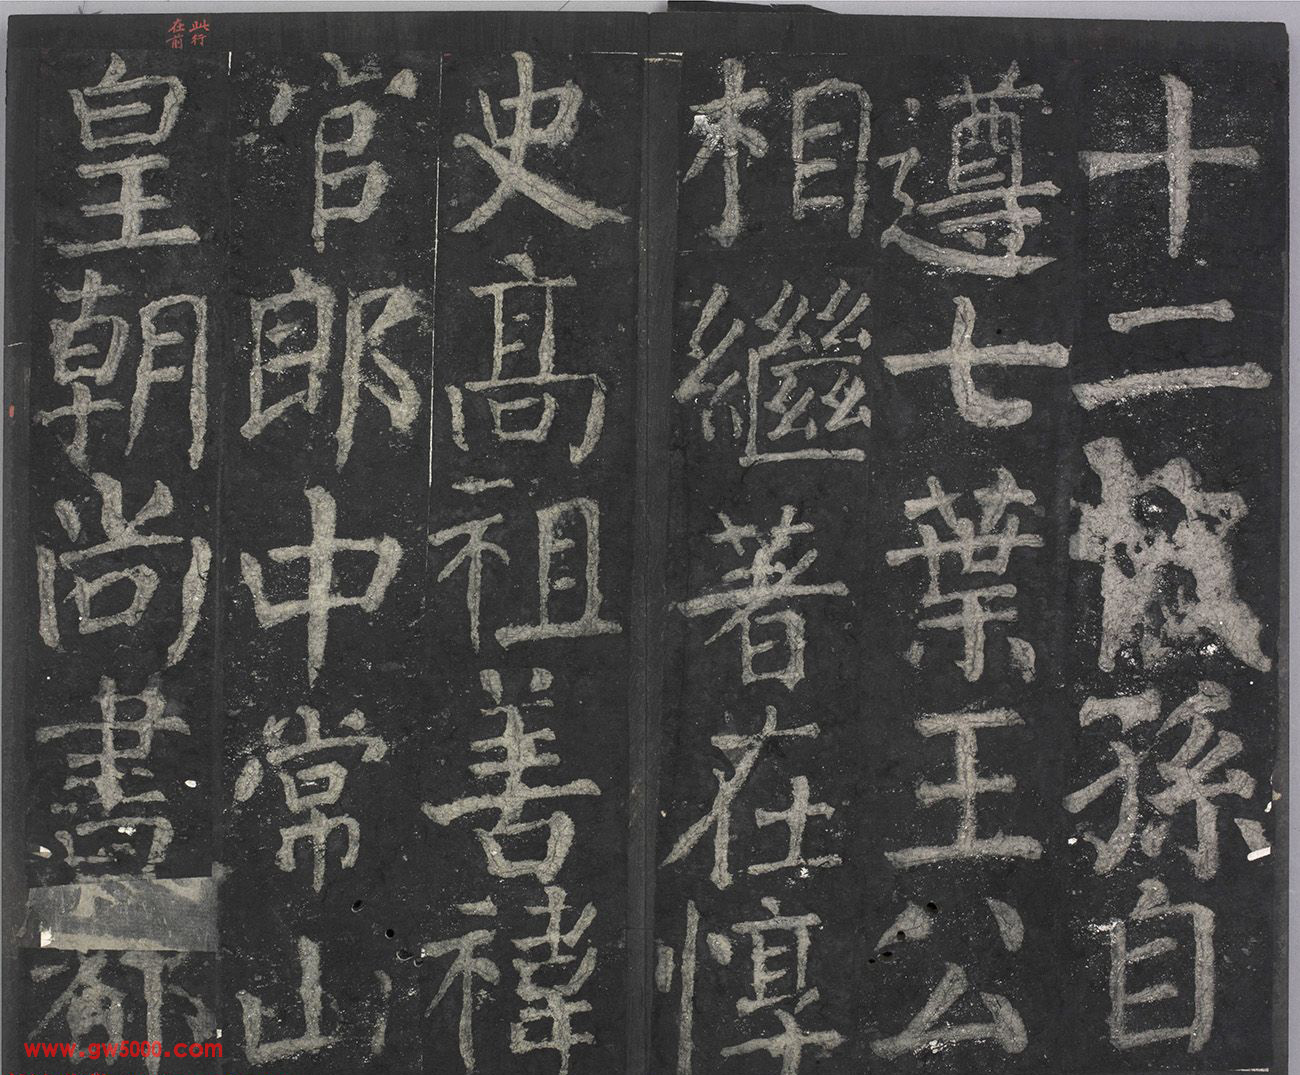 十二代孫自
遵七葉王公
相繼著在惇
史高祖善禕
官郎中常山
皇朝尚書都
此行
在前
www.gw5000.com